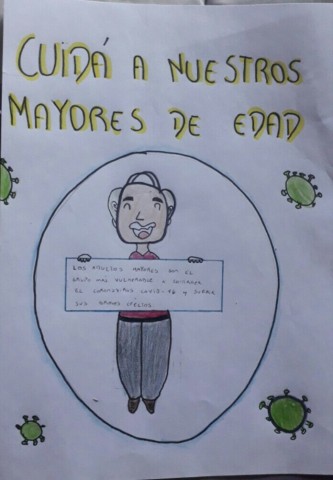 CUIDÁ A NUESTROS
MAYORES DE EDAD
LOS ADULTOS MAYORES SON EL
GRUPO MÁS VULNERABLE A CONTRAER
EL CORONAVIRUS COVID-19 Y SUFRIR
SUS GRAVES EFECTOS